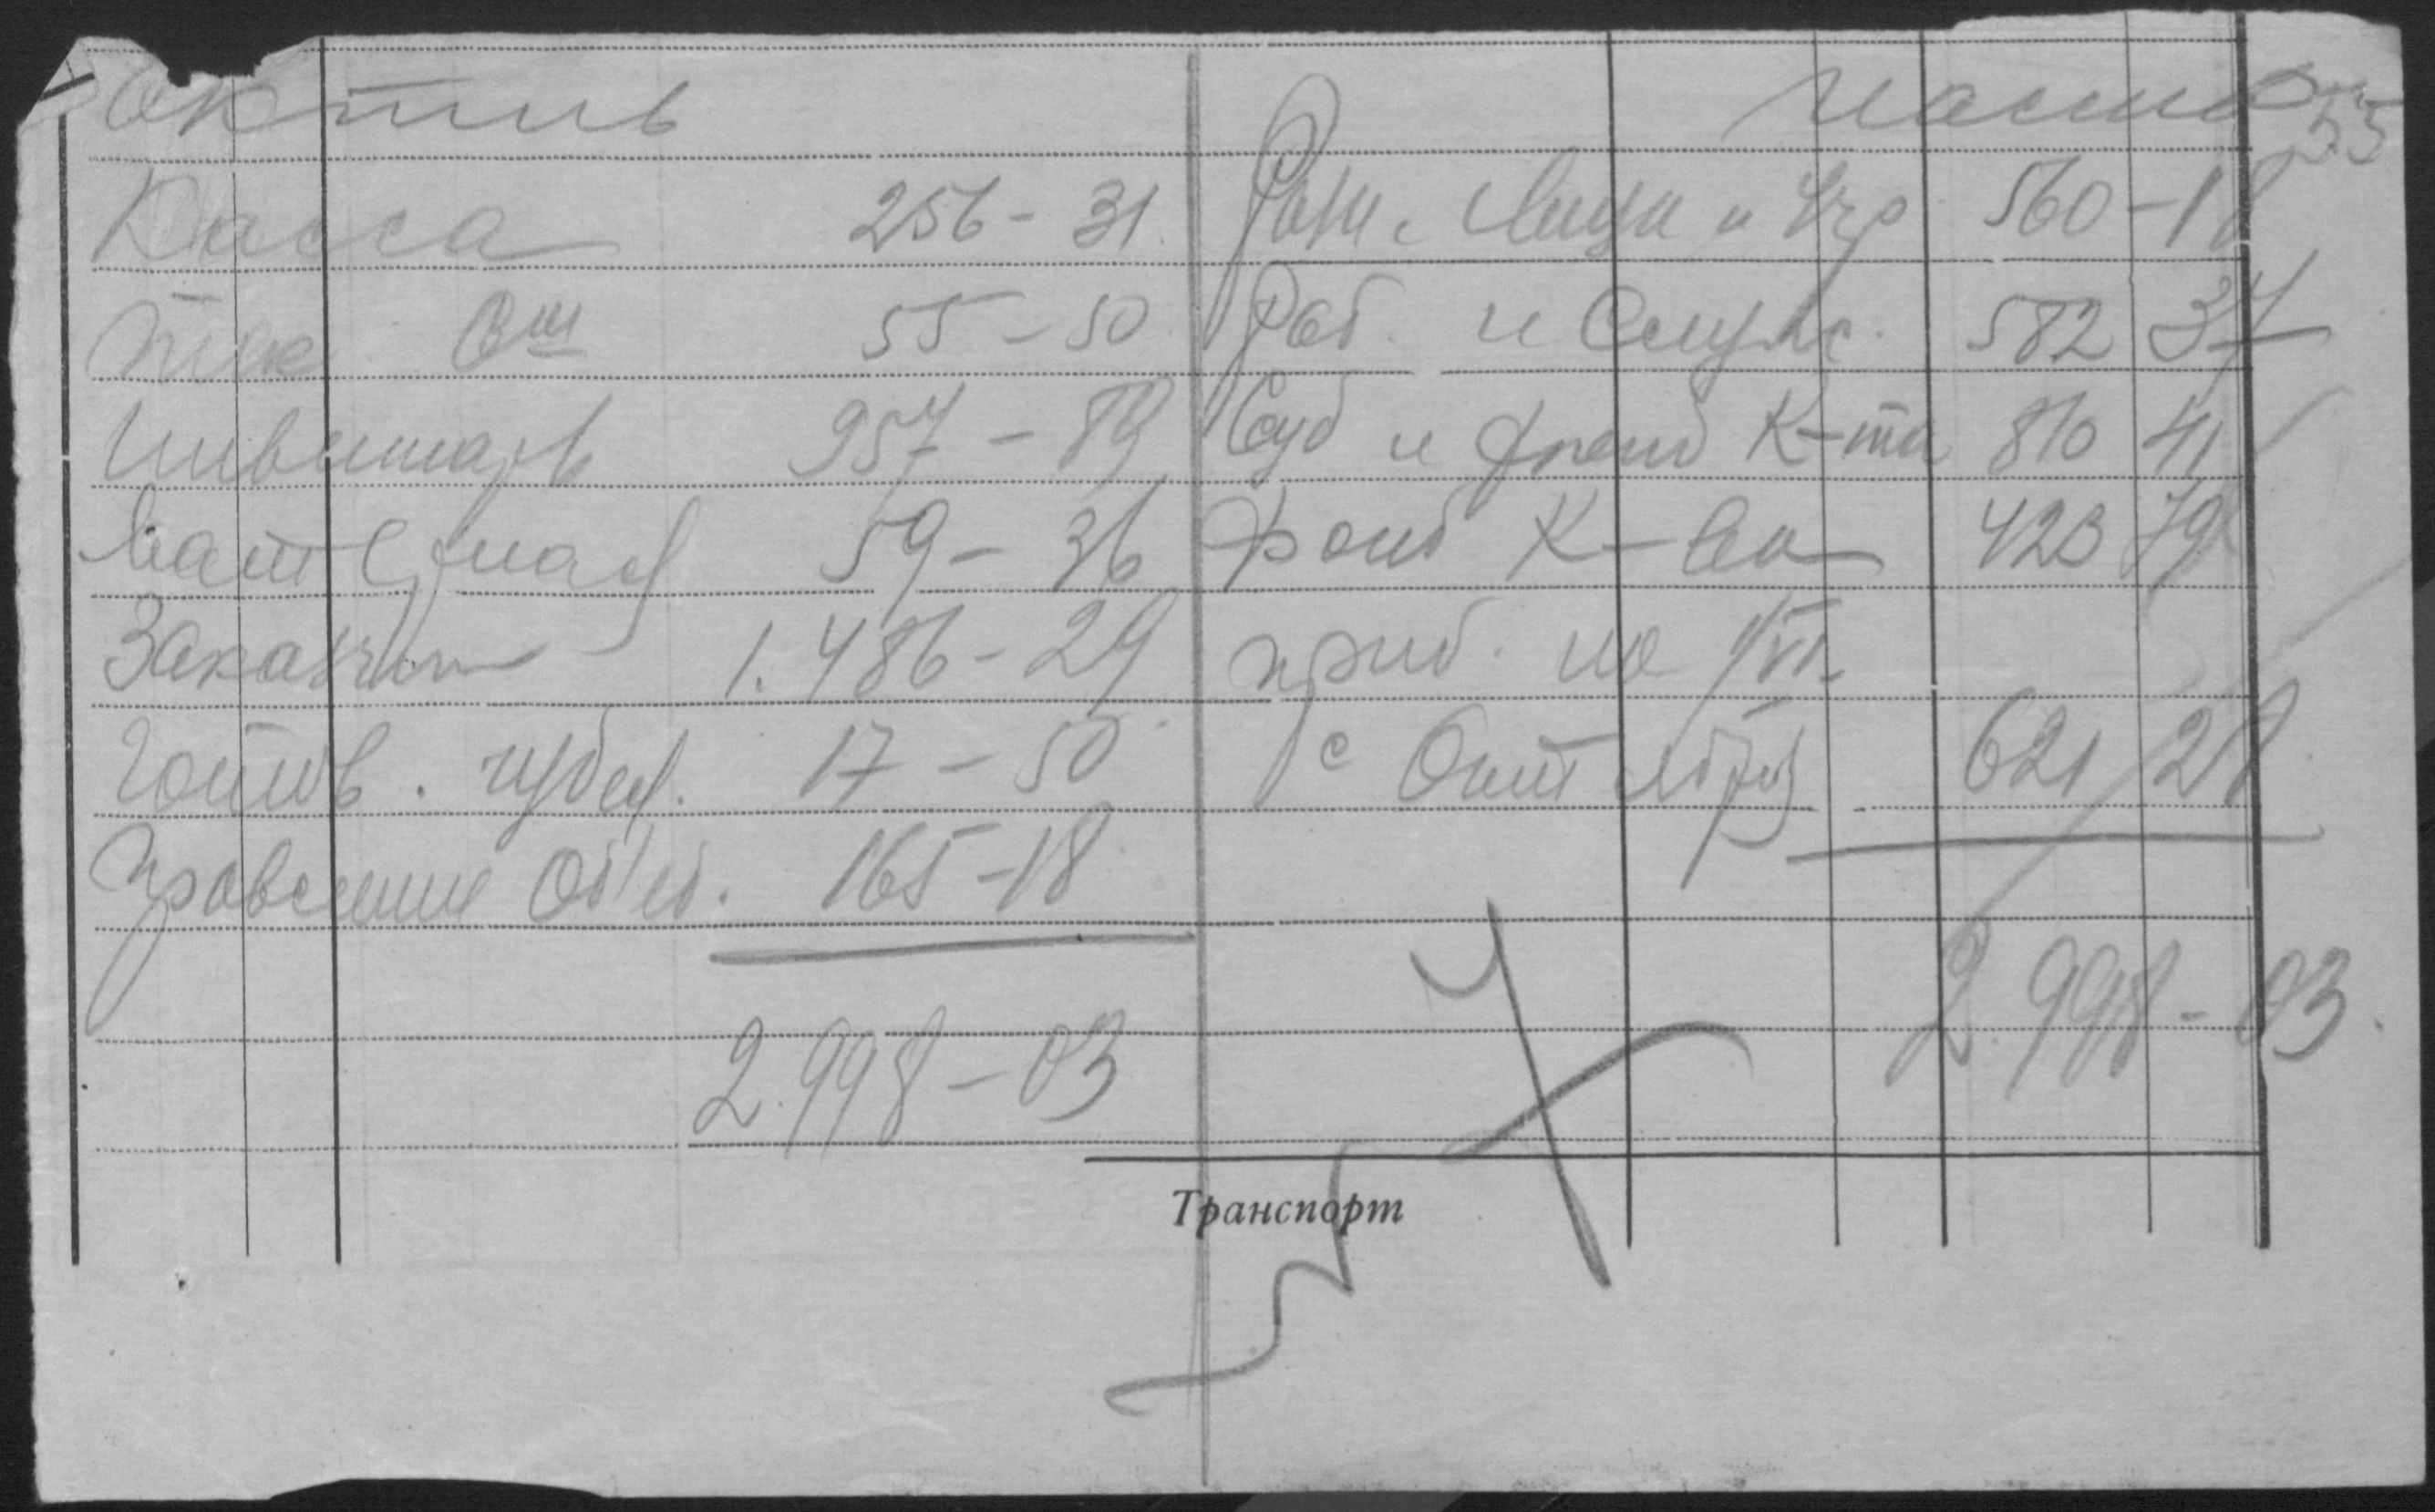 Актив
Касса 256 - 31
Тек Сч 55 - 50
Инвентарь 957 - 89
Материал 59 - 36
Заказчики 1.486 - 29
Готов. 17 - 50
Правление Об'ед. 165 - 18
2.998 - 03
Пассив
55
Разн. лица и Учр 560 - 18
Раб. и Служ. 582 37
Суд и фонд К-та 810 41
Фонд К-ва 423 79
приб. на 1/VI
с Октября 621 28
2.998 - 03
Транспорт